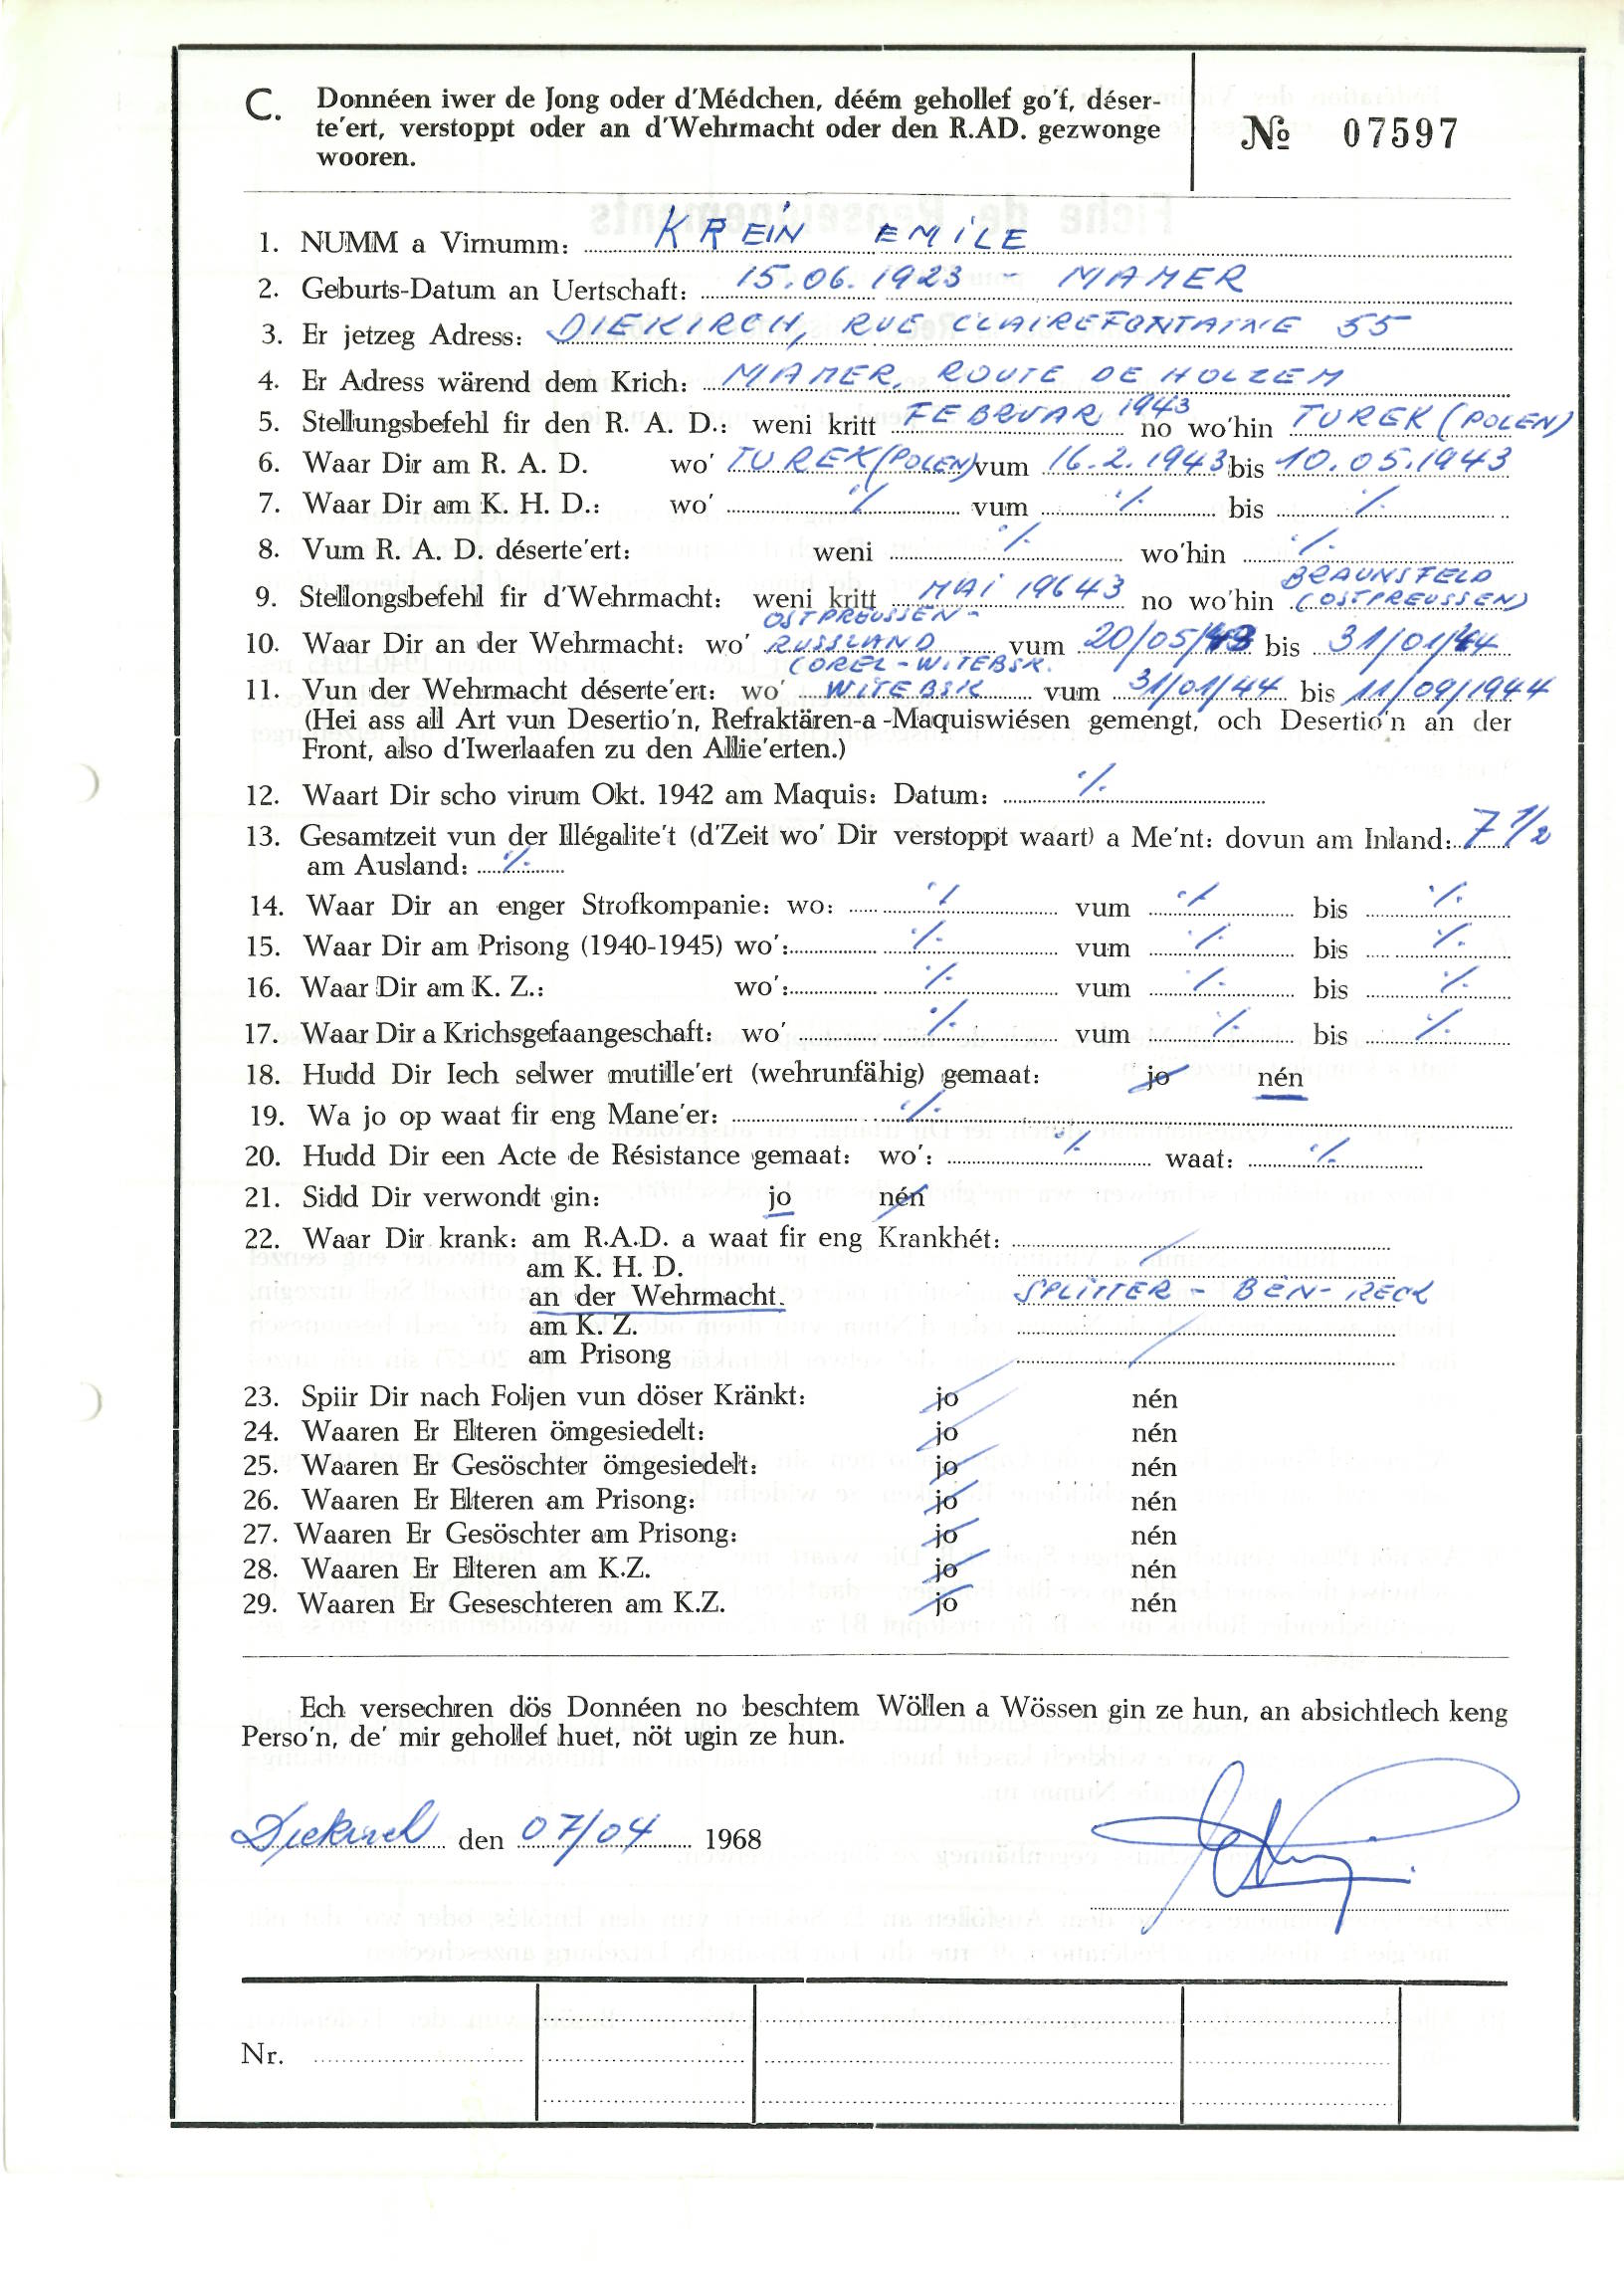 C. Donnéen iwer de Jong oder d'Médchen, déém gehollef go'f, déser-
te'ert, verstoppt oder an d'Wehrmacht oder den R.AD. gezwonge
wooren.
№ 07597
1. NUMM a Virnumm: KREIN EMILE
2. Geburts-Datum an Uertschaft: 15.06.1923 - MAMER
3. Er jetzeg Adress: DIEKIRCH, RUE CLAIREFONTAINE 55
4. Er Adress wärend dem Krich: MAMER, ROUTE DE HOLZEM
5. Stellungsbefehl fir den R. A. D.: weni kritt FEBRUAR 1943 no wo'hin TUREK (POLEN)
6. Waar Dir am R. A. D. wo' TUREK (POLEN) vum 16.2.1943 bis 10.05.1943
7. Waar Dir am K. H. D.: wo' ·/. vum ·/. bis ·/.
8. Vum R. A. D. déserte'ert: weni ·/. wo'hin ·/.
BRAUNSFELD
9. Stellongsbefehl fir d'Wehrmacht: weni kritt MAI 19643 no wo'hin (OSTPREUSSEN)
OSTPREUSSEN -
10. Waar Dir an der Wehrmacht: wo' RUSSLAND vum 20/05/43 bis 31/01/44
(OREL - WITEBSK.
11. Vun der Wehrmacht déserte'ert: wo' WITEBSK vum 31/01/44 bis 11/09/1944
(Hei ass all Art vun Desertio'n, Refraktären-a -Maquiswiésen gemengt, och Desertio'n an der
Front, also d'Iwerlaafen zu den Allie'erten.)
12. Waart Dir scho virum Okt. 1942 am Maquis: Datum: ·/.
13. Gesamtzeit vun der Illégalite't (d'Zeit wo' Dir verstoppt waart) a Me'nt: dovun am Inland: 7 1/2
am Ausland: ·/.
14. Waar Dir an enger Strofkompanie: wo: ·/. vum ·/. bis ·/.
15. Waar Dir am Prisong (1940-1945) wo': ·/. vum ·/. bis ·/.
16. Waar Dir am K. Z.: wo': ·/. vum ·/. bis ·/.
17. Waar Dir a Krichsgefaangeschaft: wo' ·/. vum ·/. bis ·/.
18. Hudd Dir Iech selwer mutille'ert (wehrunfähig) gemaat: jo nén
19. Wa jo op waat fir eng Mane'er: ·/.
20. Hudd Dir een Acte de Résistance gemaat: wo': ·/. waat: ·/.
21. Sidd Dir verwondt gin: jo nén
22. Waar Dir krank: am R.A.D. a waat fir eng Krankhét:
am K. H. D.
an der Wehrmacht. SPLITTER - BEN-RECK
am K. Z.
am Prisong
23. Spiir Dir nach Foljen vun döser Kränkt: jo nén
24. Waaren Er Elteren ömgesiedelt: jo nén
25. Waaren Er Gesöschter ömgesiedelt: jo nén
26. Waaren Er Elteren am Prisong: jo nén
27. Waaren Er Gesöschter am Prisong: jo nén
28. Waaren Er Elteren am K.Z. jo nén
29. Waaren Er Geseschteren am K.Z. jo nén
Ech versechren dös Donnéen no beschtem Wöllen a Wössen gin ze hun, an absichtlech keng
Perso'n, de' mir gehollef huet, nöt ugin ze hun.
Diekirch den 07/04 1968
Nr.